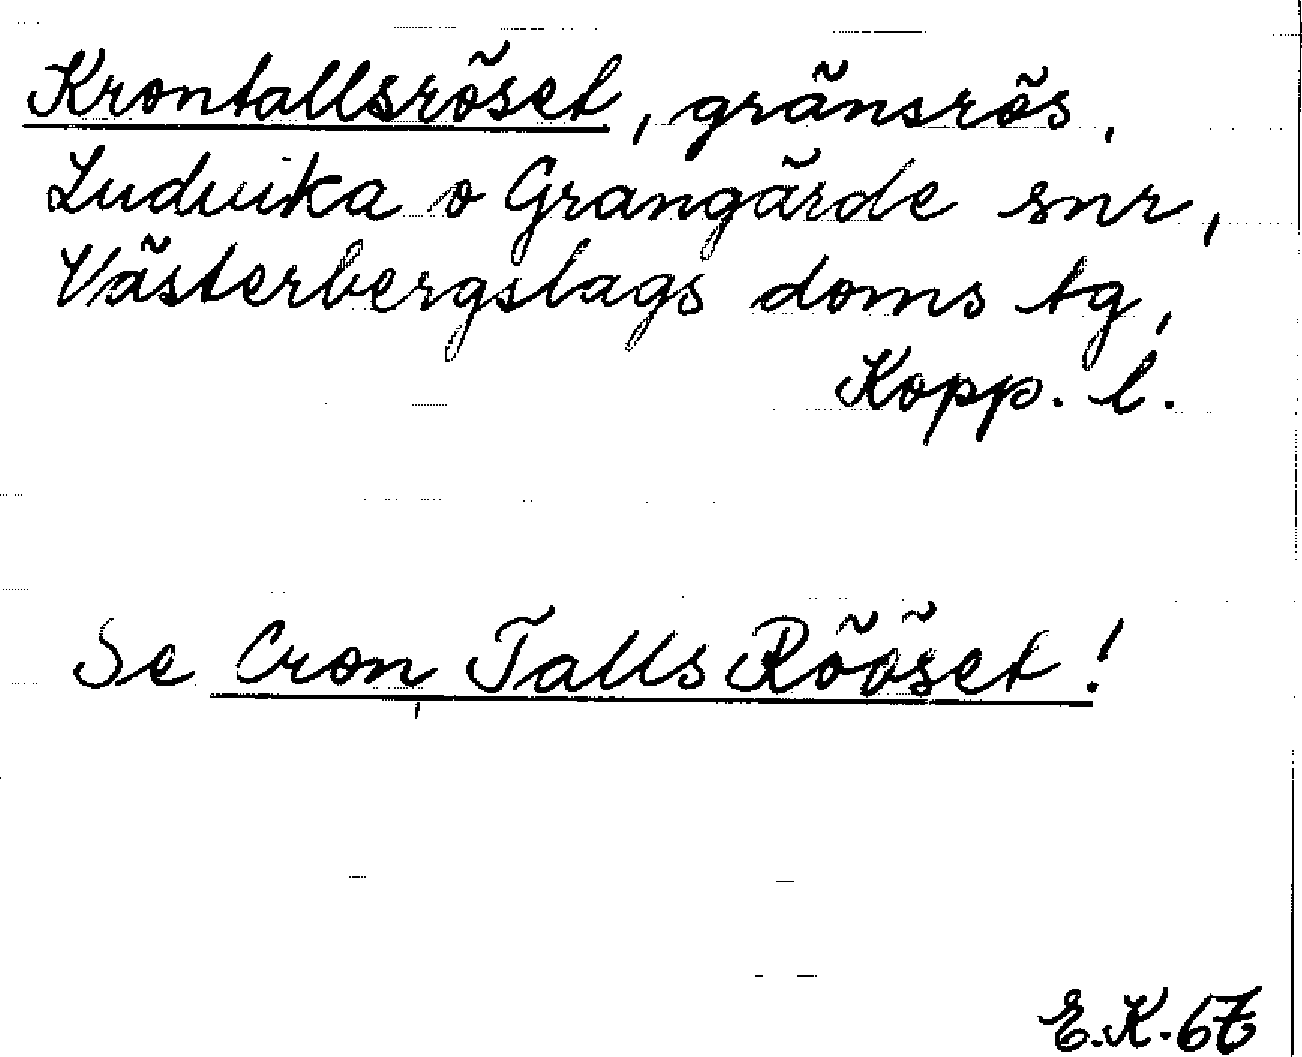 Krontallsröset, gränsrös.
Ludvika o Grangärde snr,
Västerbergslags doms tg,
Kopp. l.
Se Cron Talls Rööset!
E.K. 67